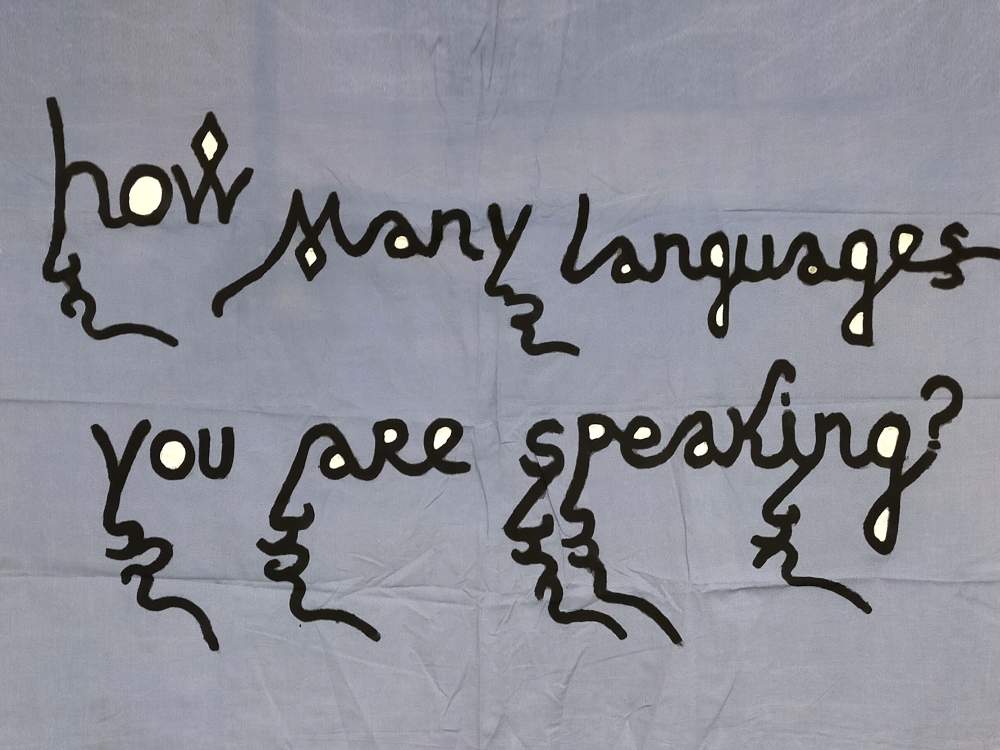 how Many languages
you are speaking?